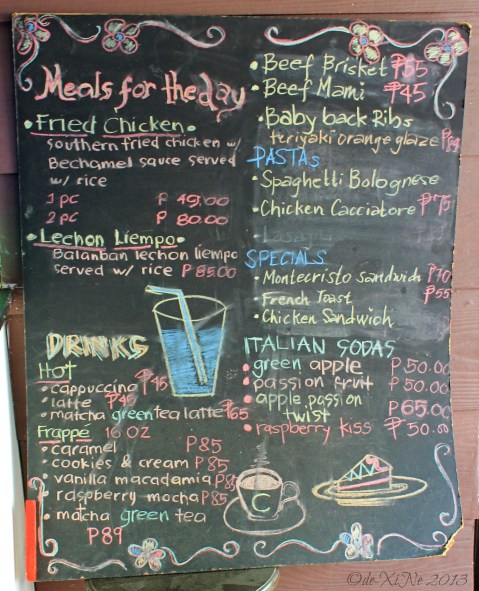 Meals for the day
• Fried Chicken •
southern fried chicken w/
Bechamel sauce served
w/ rice
1 pc ₱ 49.00
2 pc ₱ 80.00
• Lechon Liempo •
Balanban lechon liempo
served w/ rice ₱ 85.00
DRINKS
Hot
• cappuccino ₱45
• latte ₱45
• matcha green tea latte ₱65
Frappe 16 OZ
• caramel ₱85
• cookies & cream ₱85
• vanilla macadamia ₱85
• raspberry mocha ₱85
• matcha green tea
₱89
• Beef Brisket ₱55
• Beef Mami ₱45
• Baby back Ribs
teriyaki orange glaze
PASTAS
• Spaghetti Bolognese
• Chicken Cacciatore ₱75
Lasagna
SPECIALS
• Montecristo Sandwich ₱70
• French Toast ₱55
• Chicken Sandwich
ITALIAN SODAS
• green apple ₱50.00
• passion fruit ₱50.00
• apple passion
twist ₱65.00
• raspberry kiss ₱50.00
C
©de-Xi.Ne 2013